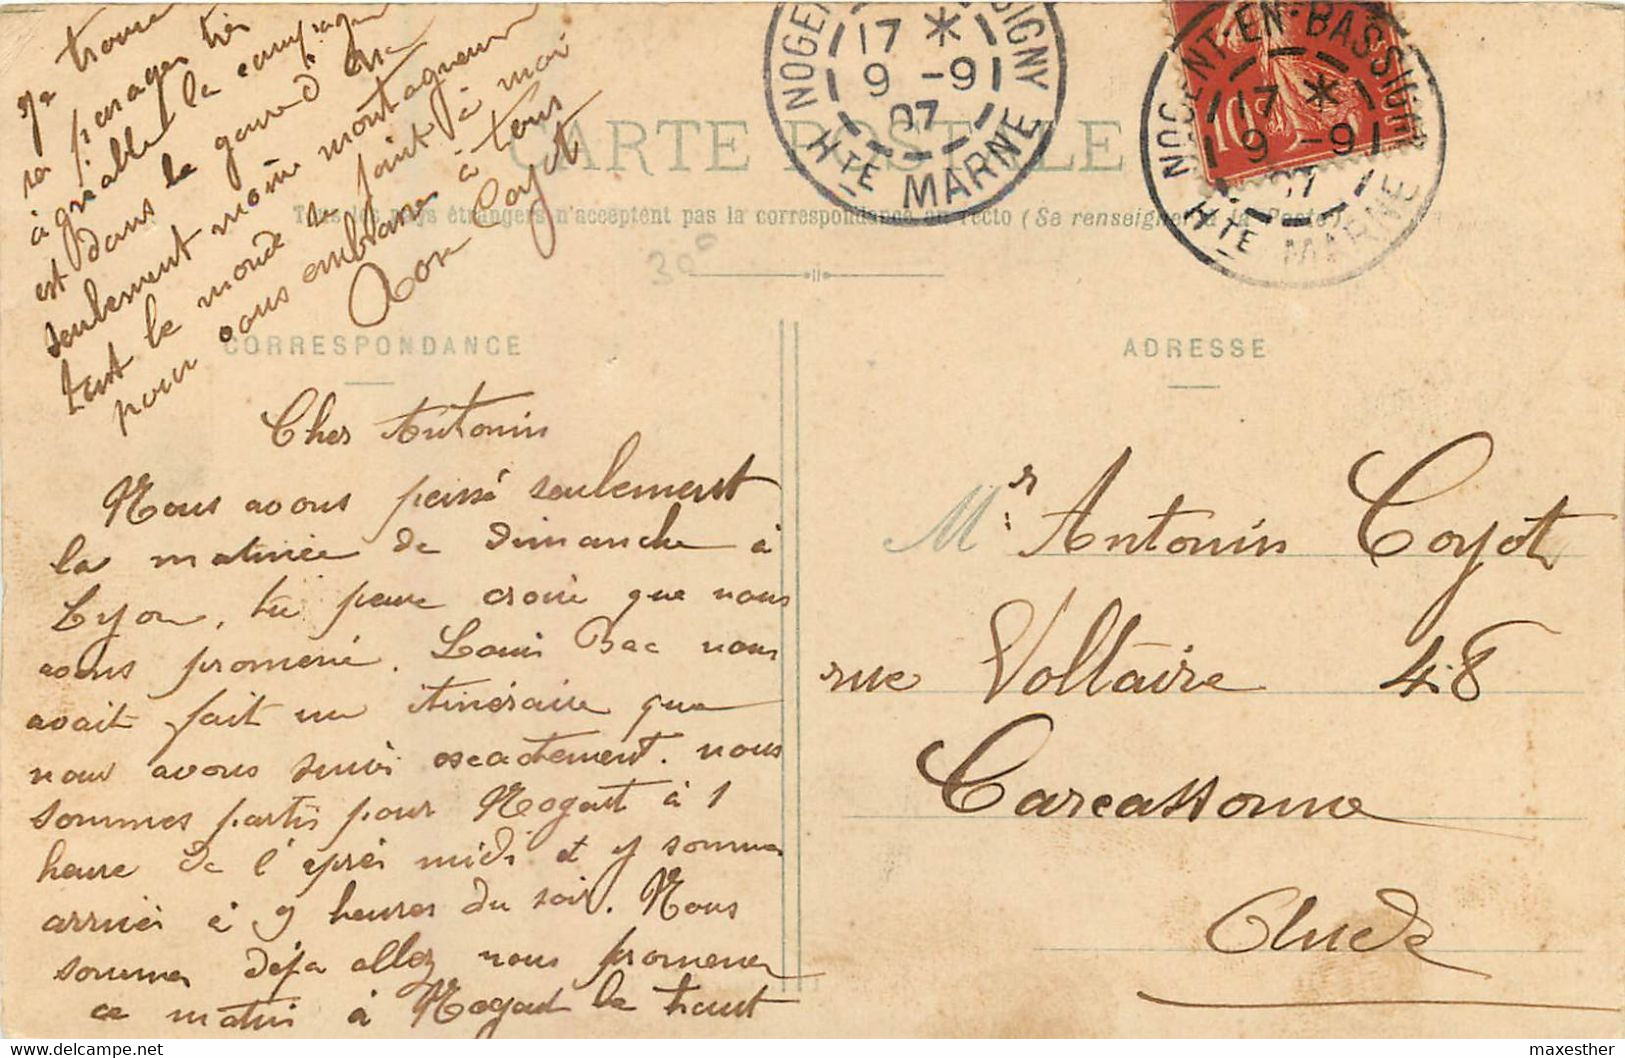 CARTE POSTALE
Tous les pays étrangers n'acceptent pas la correspondance au recto (Se renseigner à la Poste)
300
CORRESPONDANCE
Cher Antonin
Nous avons passé seulement
la matinée de dimanche à
Lyon, tu peux croire que nous
avons promené. Louis Bac nous
avait fait un itinéraire que
nous avons suivi exactement. nous
sommes partis pour Nogent à 1
heure de l'après midi et y sommes
arrivés à 9 heures du soir. Nous
sommes déja allez nous promener
ce matin à Nogent le haut
je trouve
sa parages très
agréable la campagne
est dans le grand
seulement moins montagneux
tout le monde se joint à moi
pour vous embrasser à tous
Coyot
ADRESSE
Mr Antonin Coyot
rue Voltaire 48
Carcassonne
Aude
NOGENT-EN-BASSIGNY
17 *
9 -9
07
HTE MARNE
NOGENT-EN-BASSIGNY
17 *
9 -9
07
HTE MARNE
10
maxesther